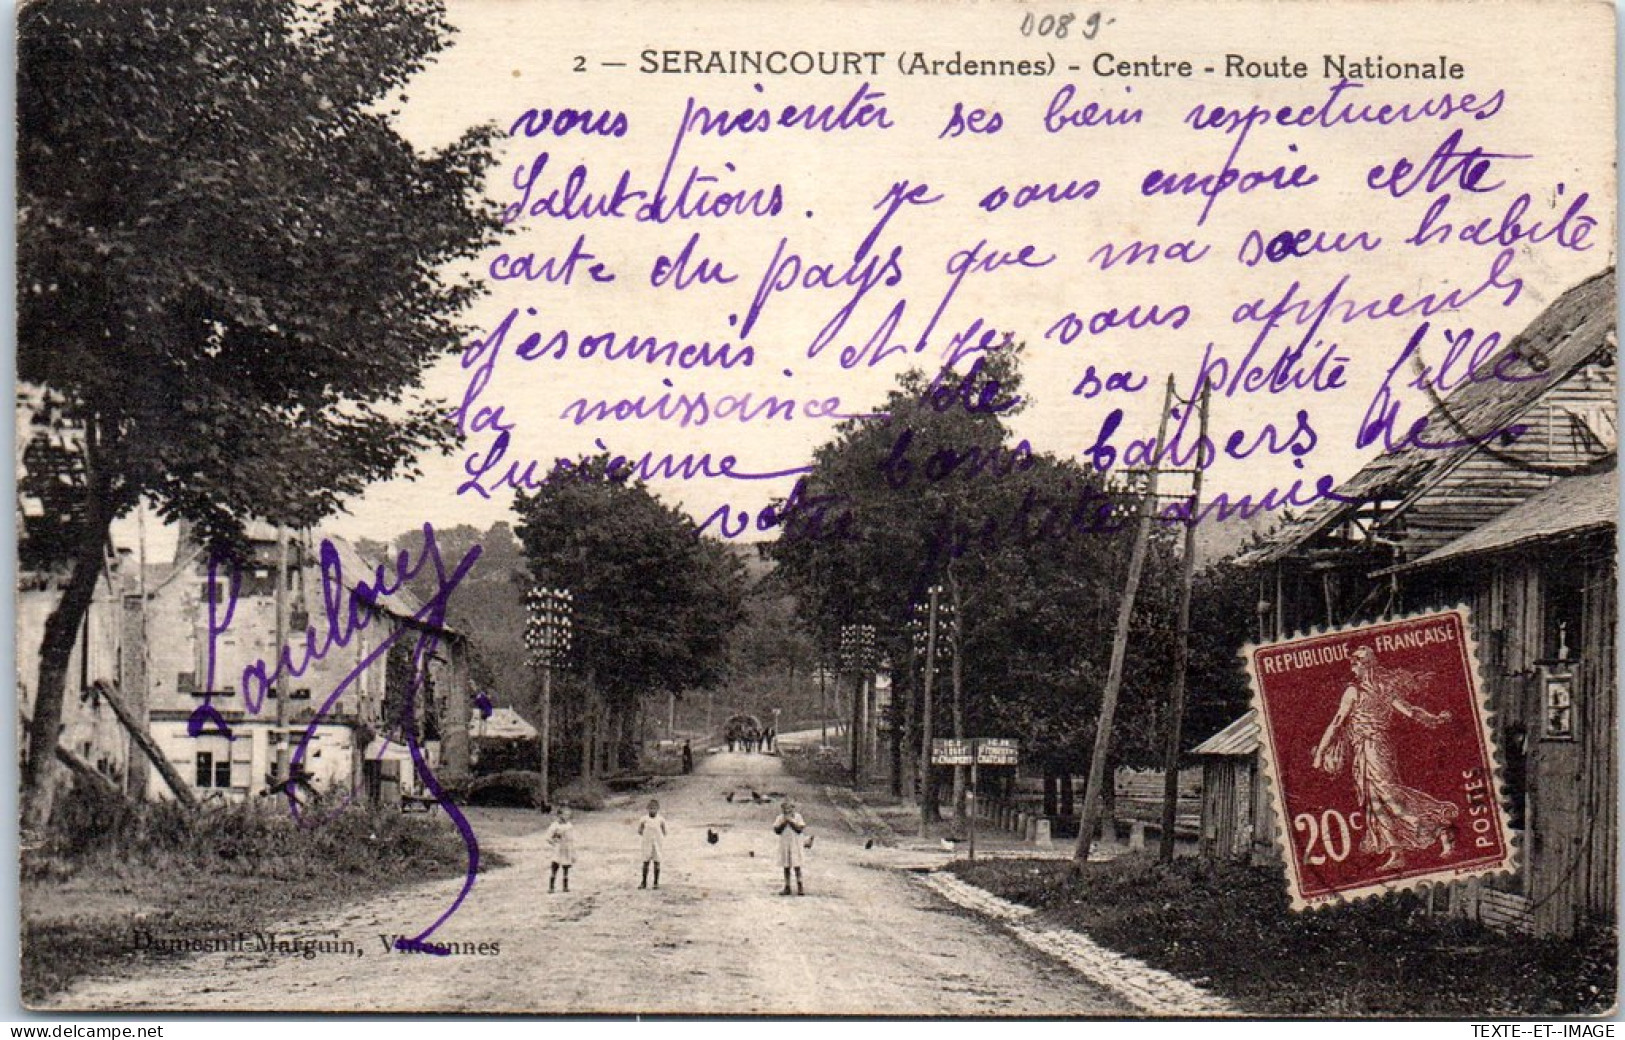 0089
2 — SERAINCOURT (Ardennes) - Centre - Route Nationale
vous présenter ses bien respectueuses
Salutations. je vous envoie cette
carte du pays que ma sœur habite
désormais et je vous apprends
la naissance de sa petite fille
Lucienne bons baisers de
votre petite amie
Loulou
REPUBLIQUE FRANÇAISE
20c
POSTES
Dumesnil-Marguin, Vincennes
TEXTE--ET--IMAGE